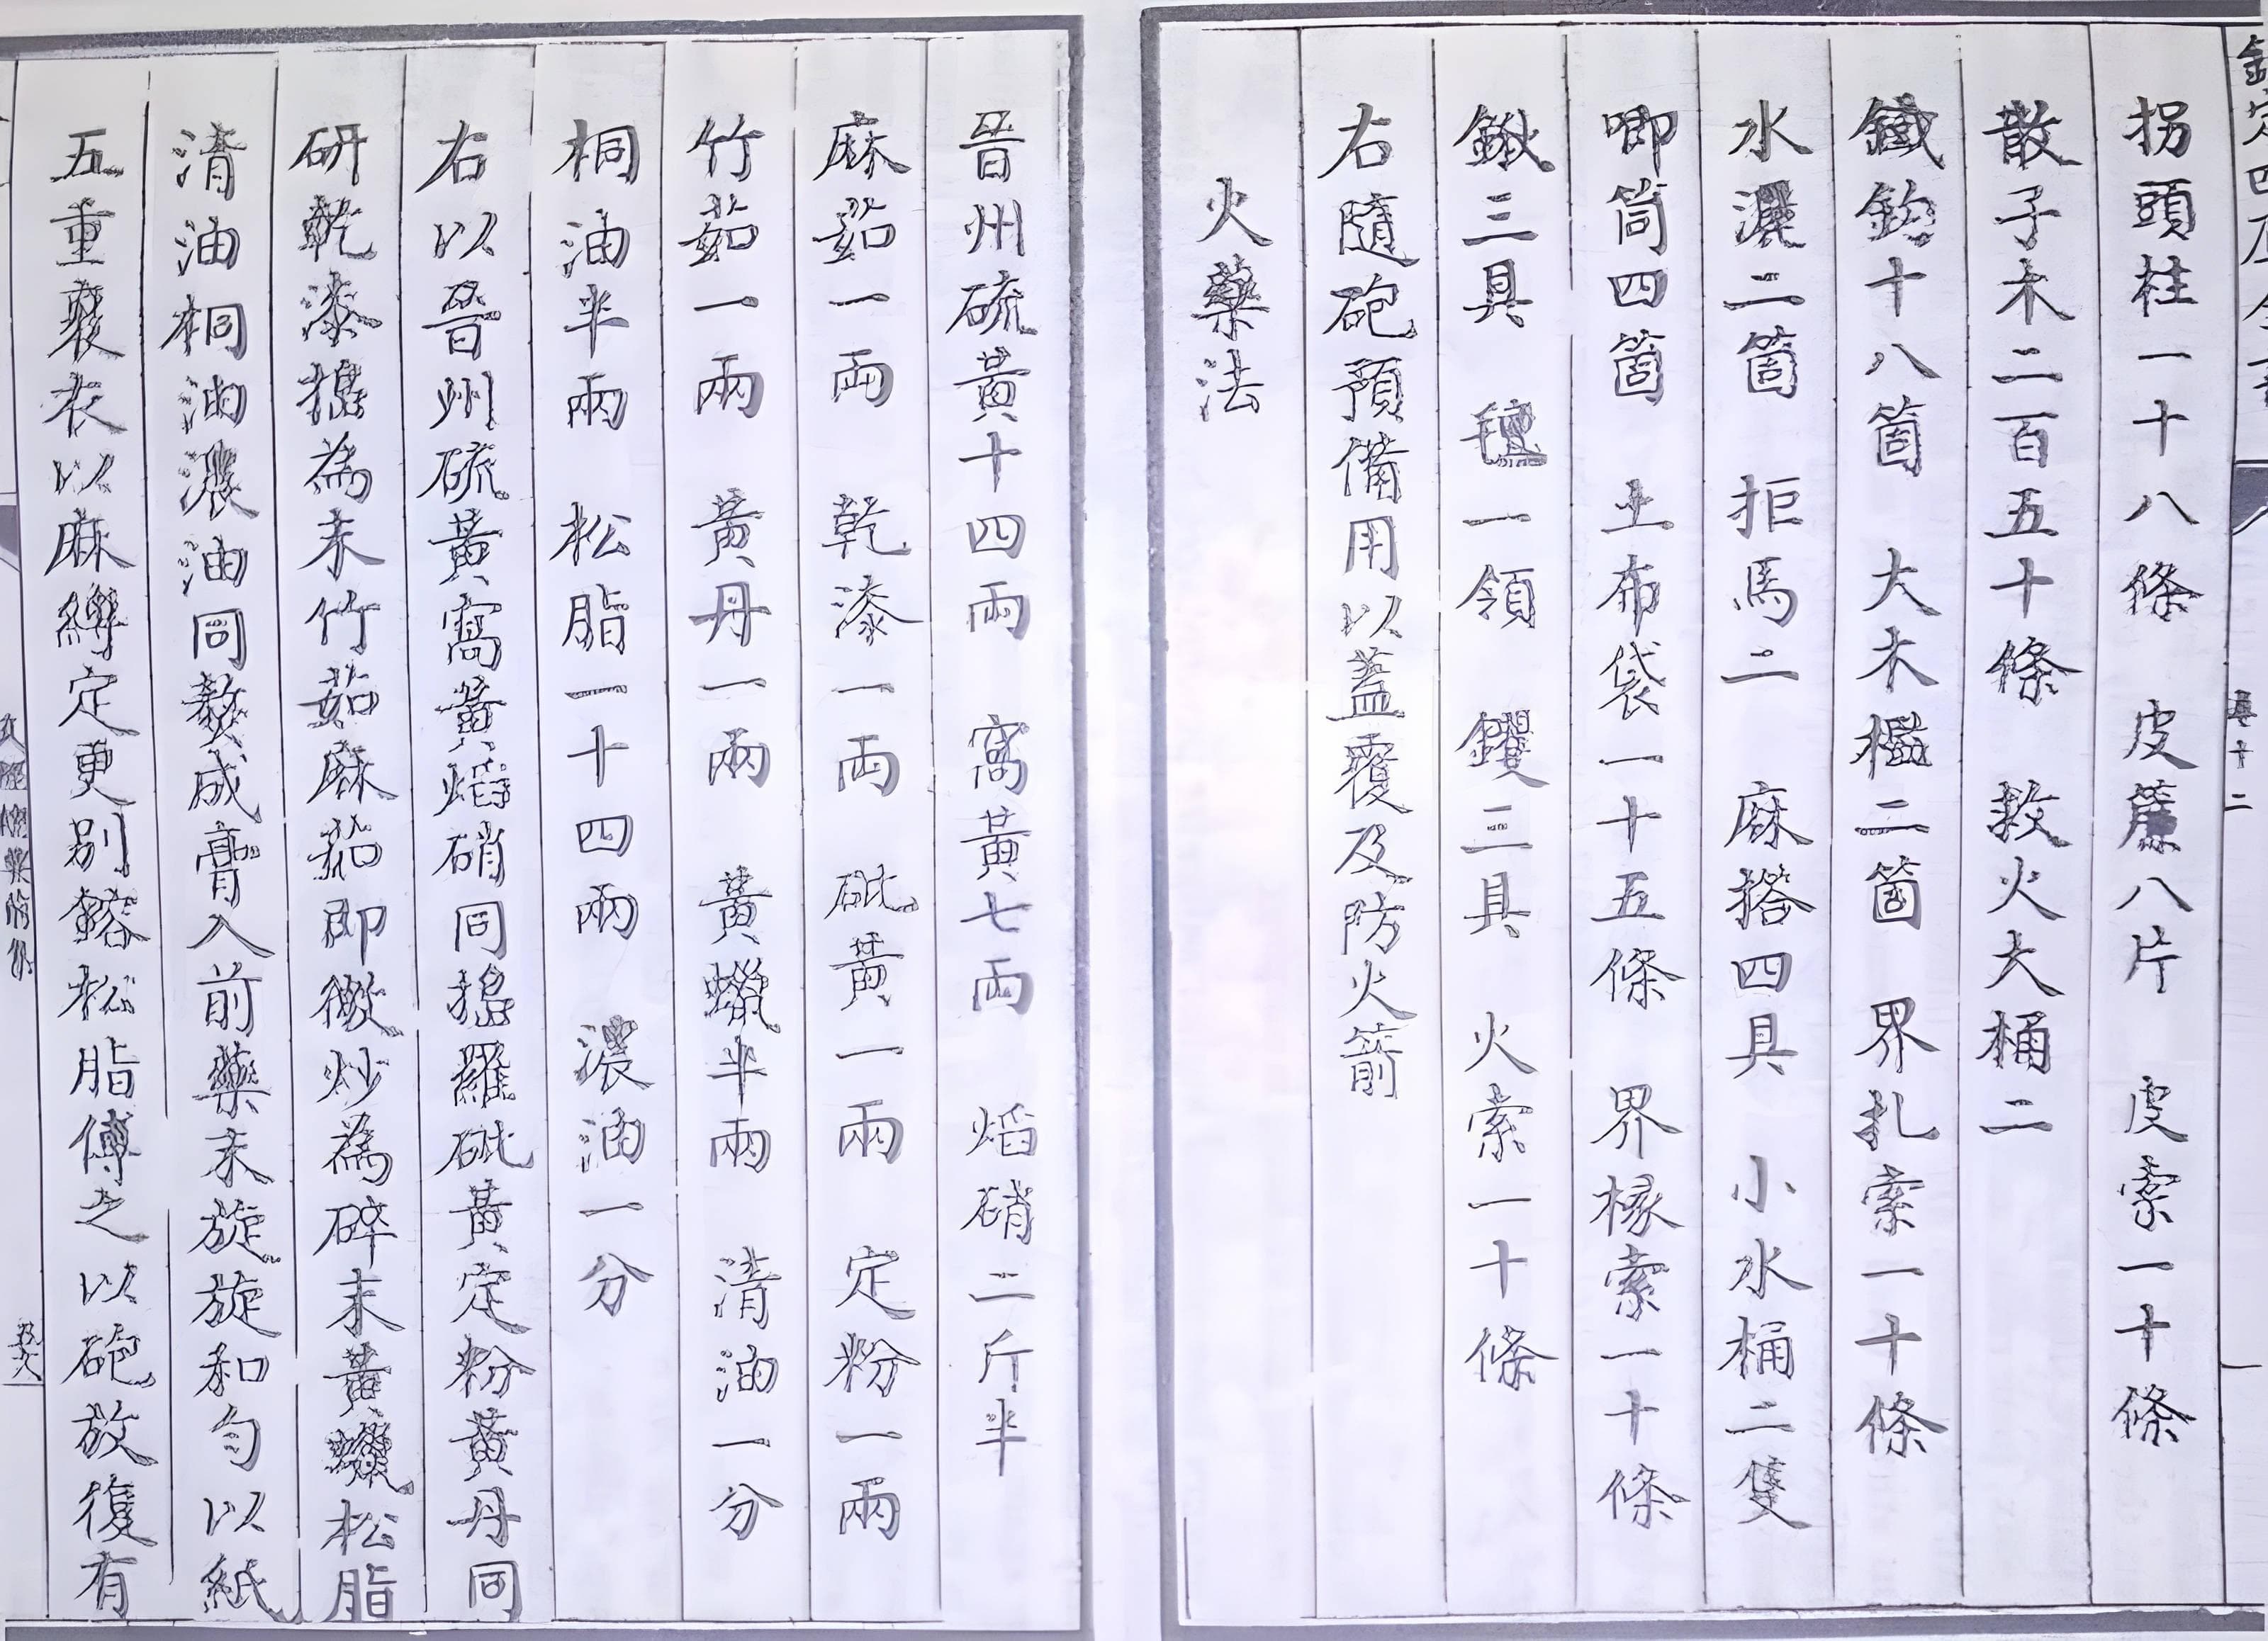 拐頭柱一十八條 皮簾八片 皮索一十條
散子木二百五十條 救火大桶二
鐵鈎十八箇 大木檻二箇 界扎索一十條
水濃二箇 拒馬二 麻搭四具 小水桶二隻
唧筒四箇 土布袋一十五條 界椽索一十條
鍬三具 氊一領 钁三具 火索一十條
右隨砲預備用以蓋覆及防火箭
火藥法
晉州硫黃十四兩 窩黃七兩 焰硝二斤半
麻茹一兩 乾漆一兩 砒黃一兩 定粉一兩
竹茹一兩 黃丹一兩 黃蠟半兩 清油一分
桐油半兩 松脂一十四兩 濃油一分
右以晉州硫黃窩黃焰硝同搗羅砒黃定粉黃丹同
研乾漆搗為末竹茹麻茹即微炒為碎末黃蠟松脂
清油桐油濃油同熬成膏入前藥末旋旋和勻以紙
五重裹衣以麻縛定更別鎔松脂傅之以砲放復有
卷十二